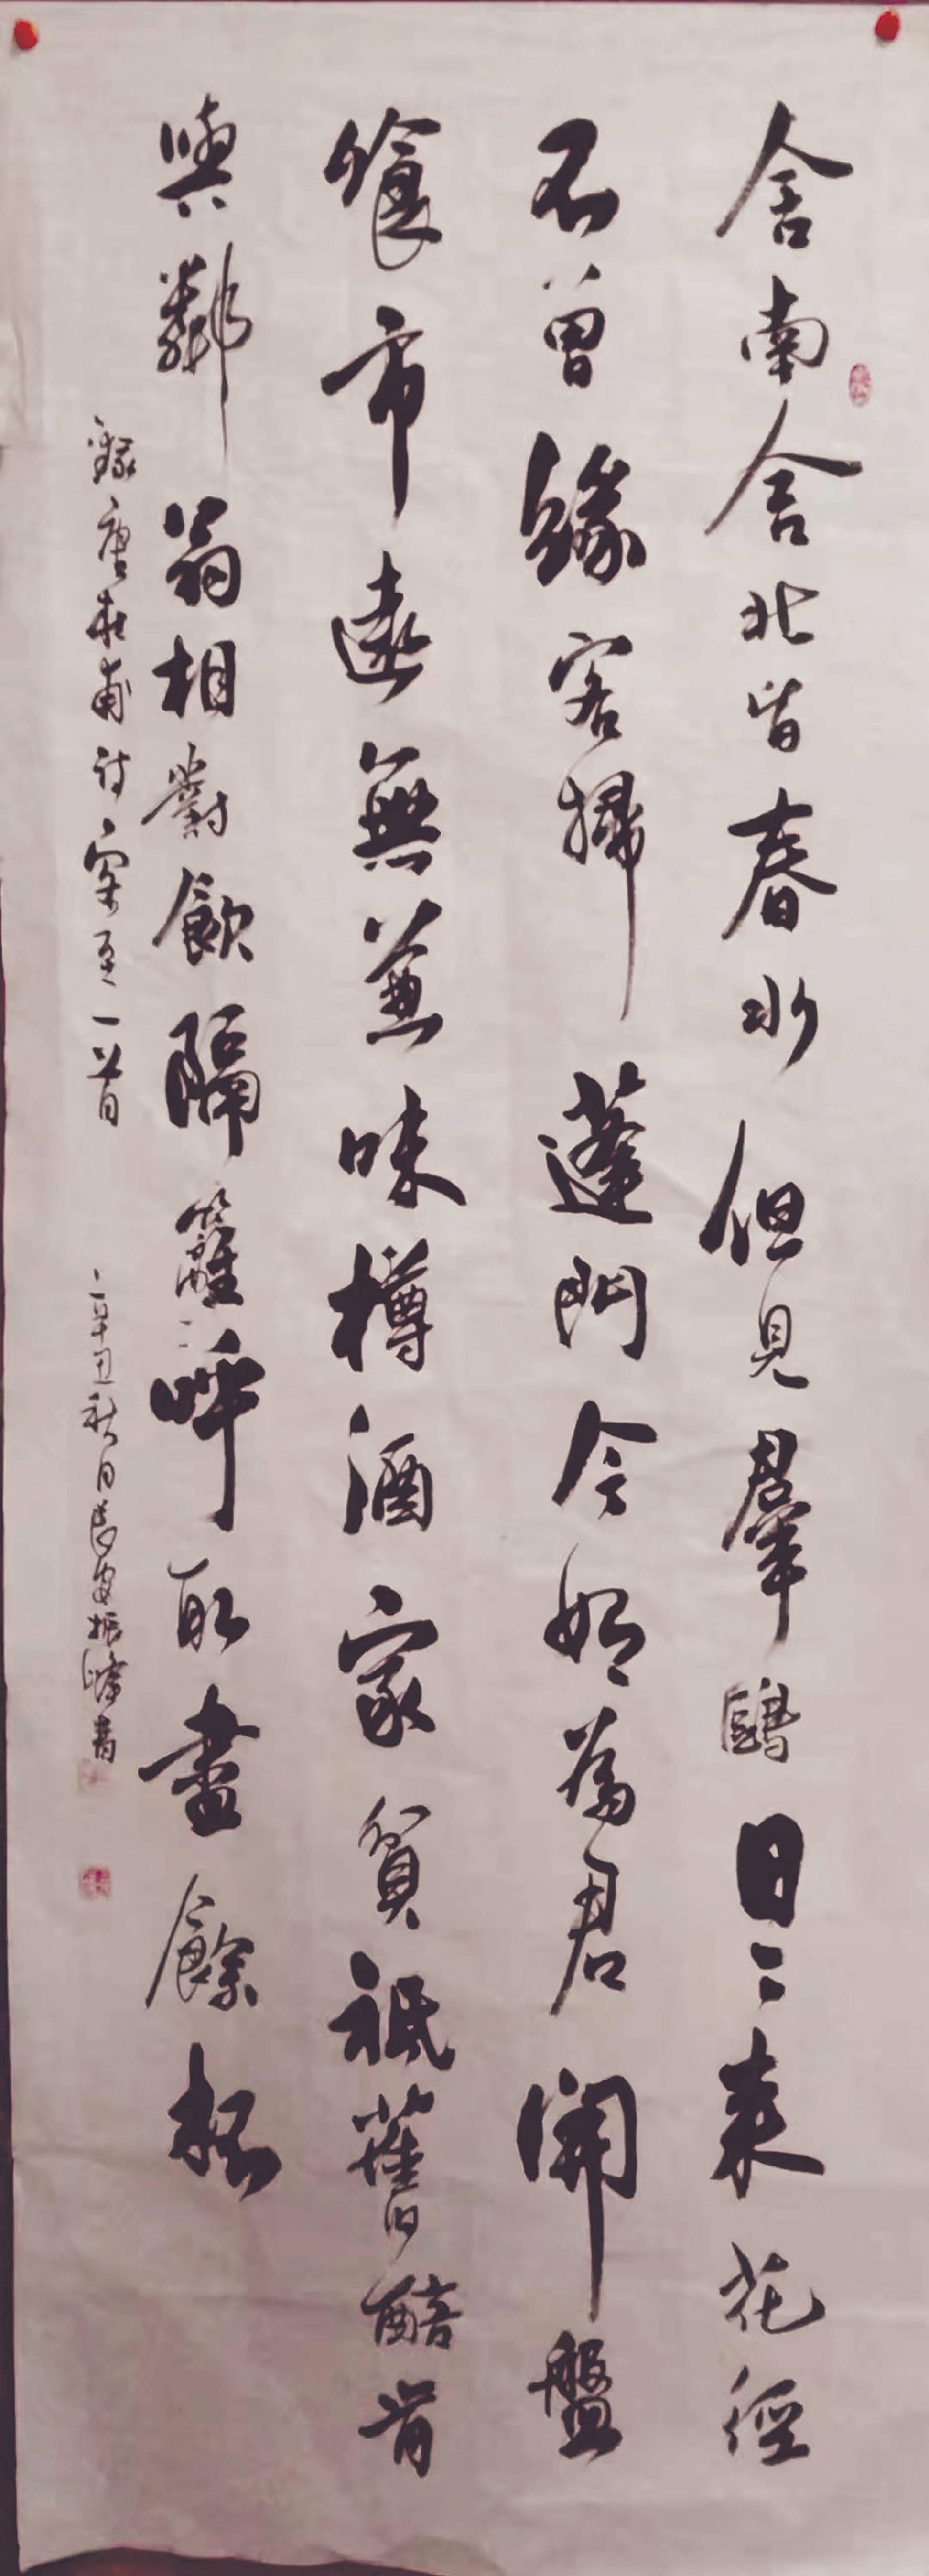 舍南舍北皆春水但見羣鷗日〻来花徑
不曾緣客掃蓬門今始為君開盤
飧市遠無兼味樽酒家貧祗舊醅肯
與鄰翁相對飲隔籬呼取盡餘杯
錄唐杜甫诗客至一首
辛丑秋日長安振峰書